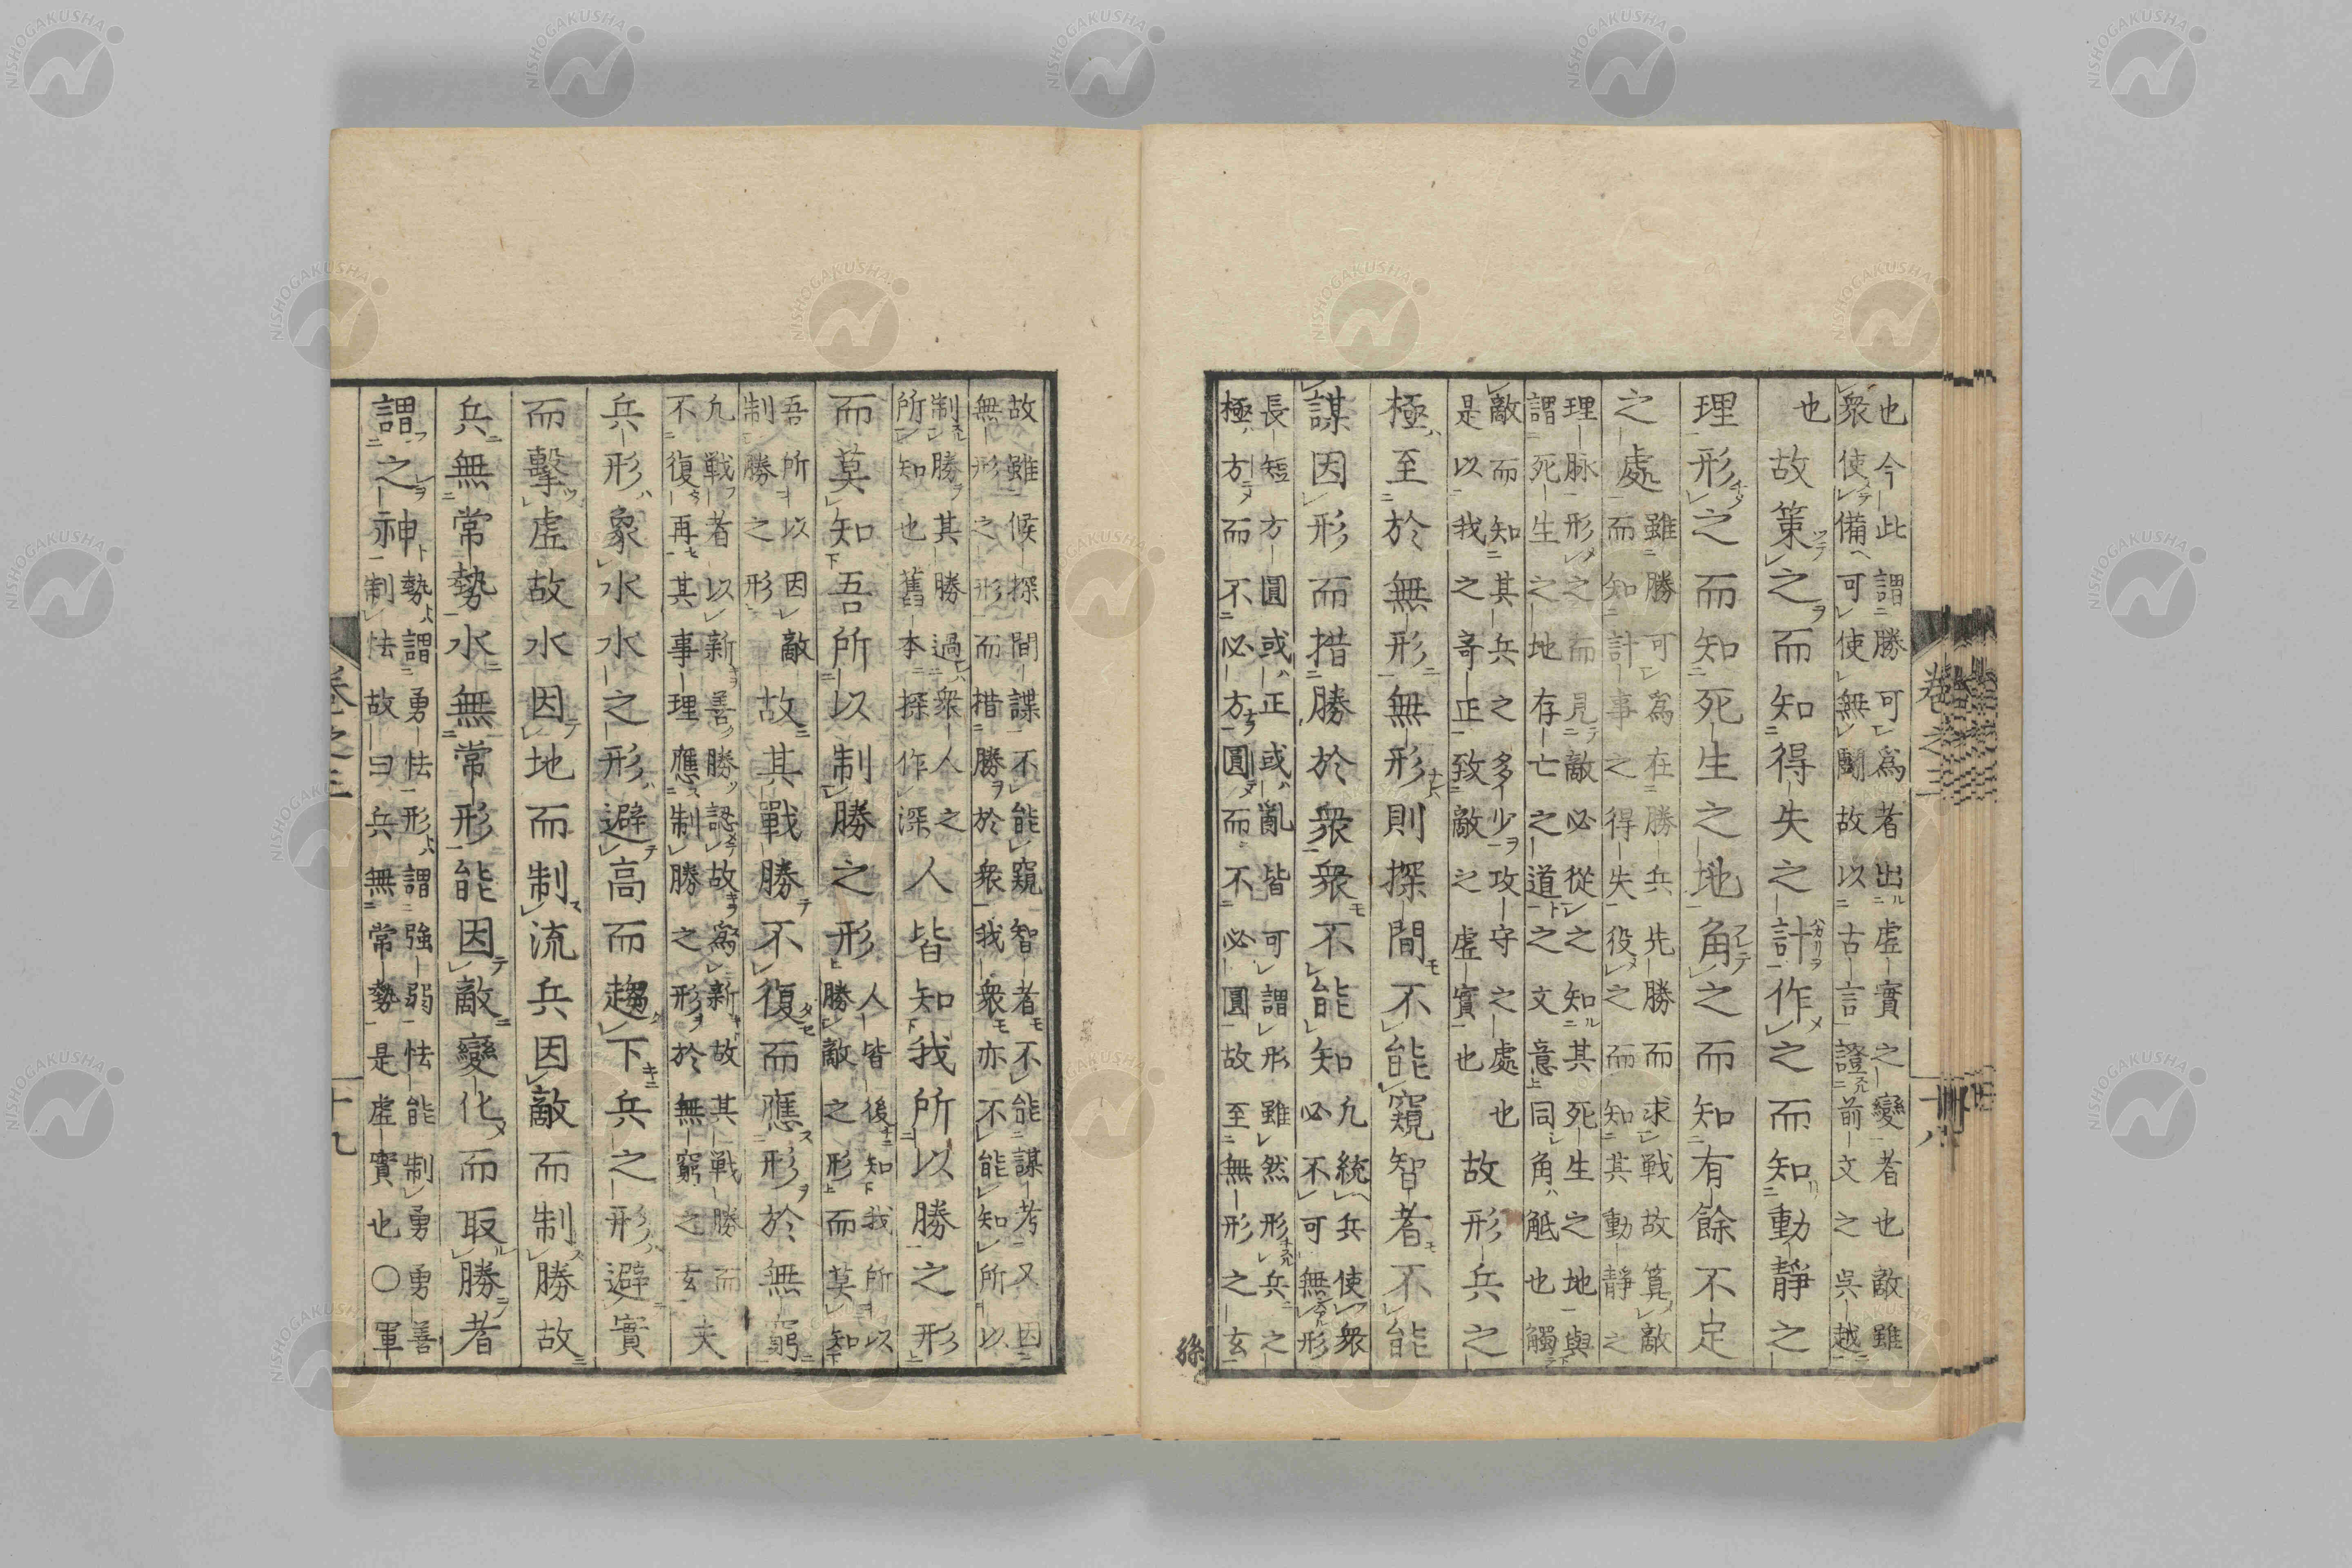 卷之三
十八
也今此謂勝可爲者出虛實之變者也敵雖
衆使備可使無鬭故以古言證前文之吳越
也故策之而知得失之計作之而知動靜之
理形之而知死生之地角之而知有餘不足
之處
雖勝可爲在勝兵先勝而求戰故筭敵
而知計事之得失役之而知其動靜之
理脉形之而見敵必從之知其死生之地與
謂死生之地存亡之道之文意同角觝也觸
敵而知其兵之多少攻守之處也
是以我之竒正致敵之虛實也
故形兵之
極至於無形無形則探間不能窺智者不能
謀因形而措勝於衆衆不能知
凢統兵使衆
必不可無形
長短方圓或正或亂皆可謂形雖然形兵之
極方而不必方圓而不必圓故至無形之玄
孫
故雖候探間諜不能窺智者不能謀考又因
無形之形而措勝於衆我衆亦不能知所以
制勝其勝過衆人之
所知也舊本探作深
人皆知我所以勝之形
而莫知吾所以制勝之形
人皆後知我所以
勝敵之形而莫知
吾所以因敵
制勝之形
故其戰勝不復而應形於無窮
凢戰者以新善勝認故爲新故其戰勝而
不復再其事理應制勝之形於無窮之玄
夫
兵形象水水之形避高而趨下兵之形避實
而擊虛故水因地而制流兵因敵而制勝故
兵無常勢水無常形能因敵變化而取勝者
謂之神
勢謂勇怯形謂強弱怯能制勇勇善
制怯故曰兵無常勢是虛實也〇軍
卷之三
十九
NISHOGAKUSHA